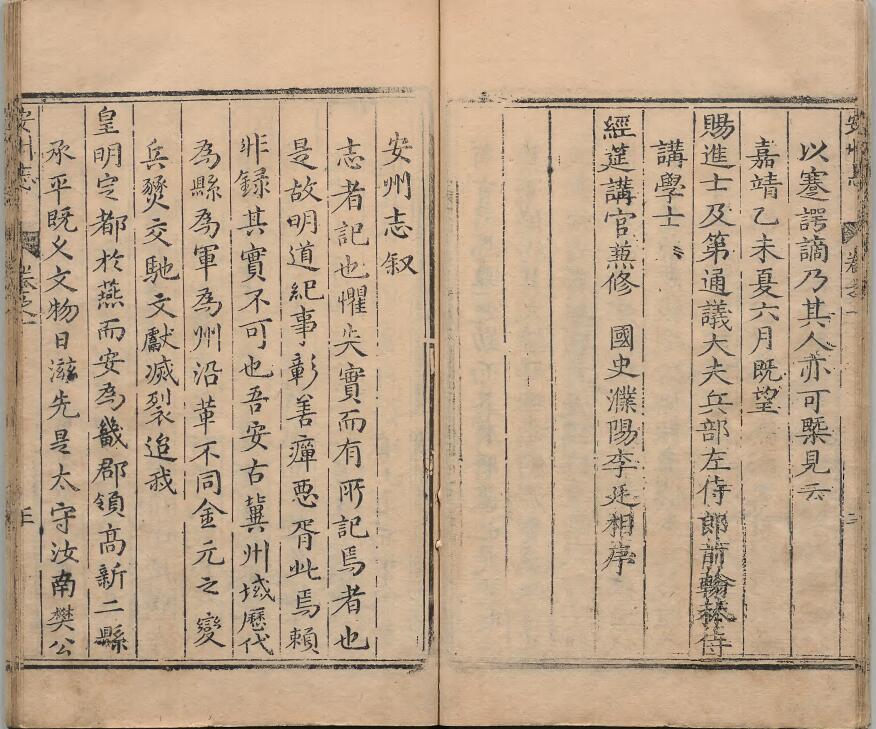 安州志
卷之一
二
以蹇諤謫乃其人亦可槩見云
嘉靖乙未夏六月既望
賜進士及第通議大夫兵部左侍郎前翰林侍
講學士
經筵講官兼修　國史濮陽李廷相序
安州志叙
志者記也懼失實而有所記焉者也
是故明道紀事彰善癉惡胥此焉賴
非録其實不可也吾安古冀州域歷代
為縣為軍為州沿革不同金元之變
兵燹交馳文獻滅裂迨我
皇明定都於燕而安為畿郡領高新二縣
承平既久文物日滋先是太守汝南樊公
安州志
卷之一
三